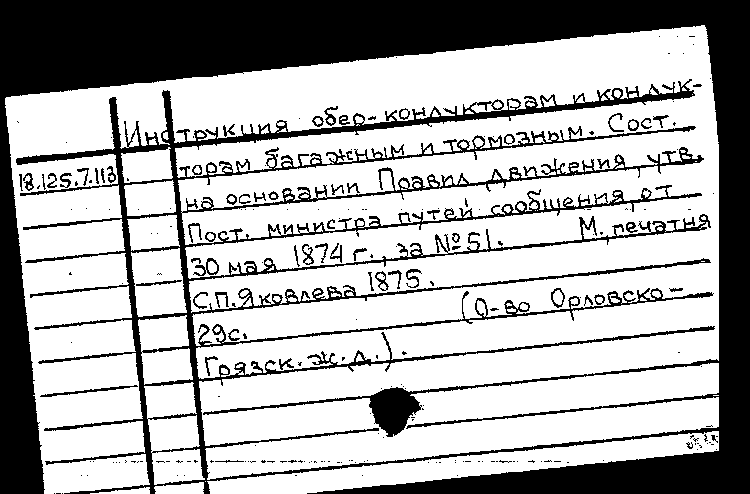 Инструкция обер-кондукторам и кондук-
18.125.7.113.
торам багажным и тормозным. Сост.
на основании Правил движения, утв.
Пост. министра путей сообщения, от
30 мая 1874 г., за №51. М., печатня
С.П.Яковлева, 1875.
29с. (О-во Орловско-
Грязск. ж.д.).